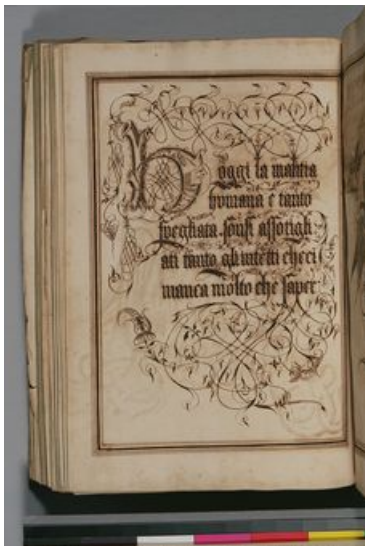 hoggi la malitia
humana è tanto
svegliata. sonsi assotigli
ati tanto gli intelletti che ci
manca molto che saper